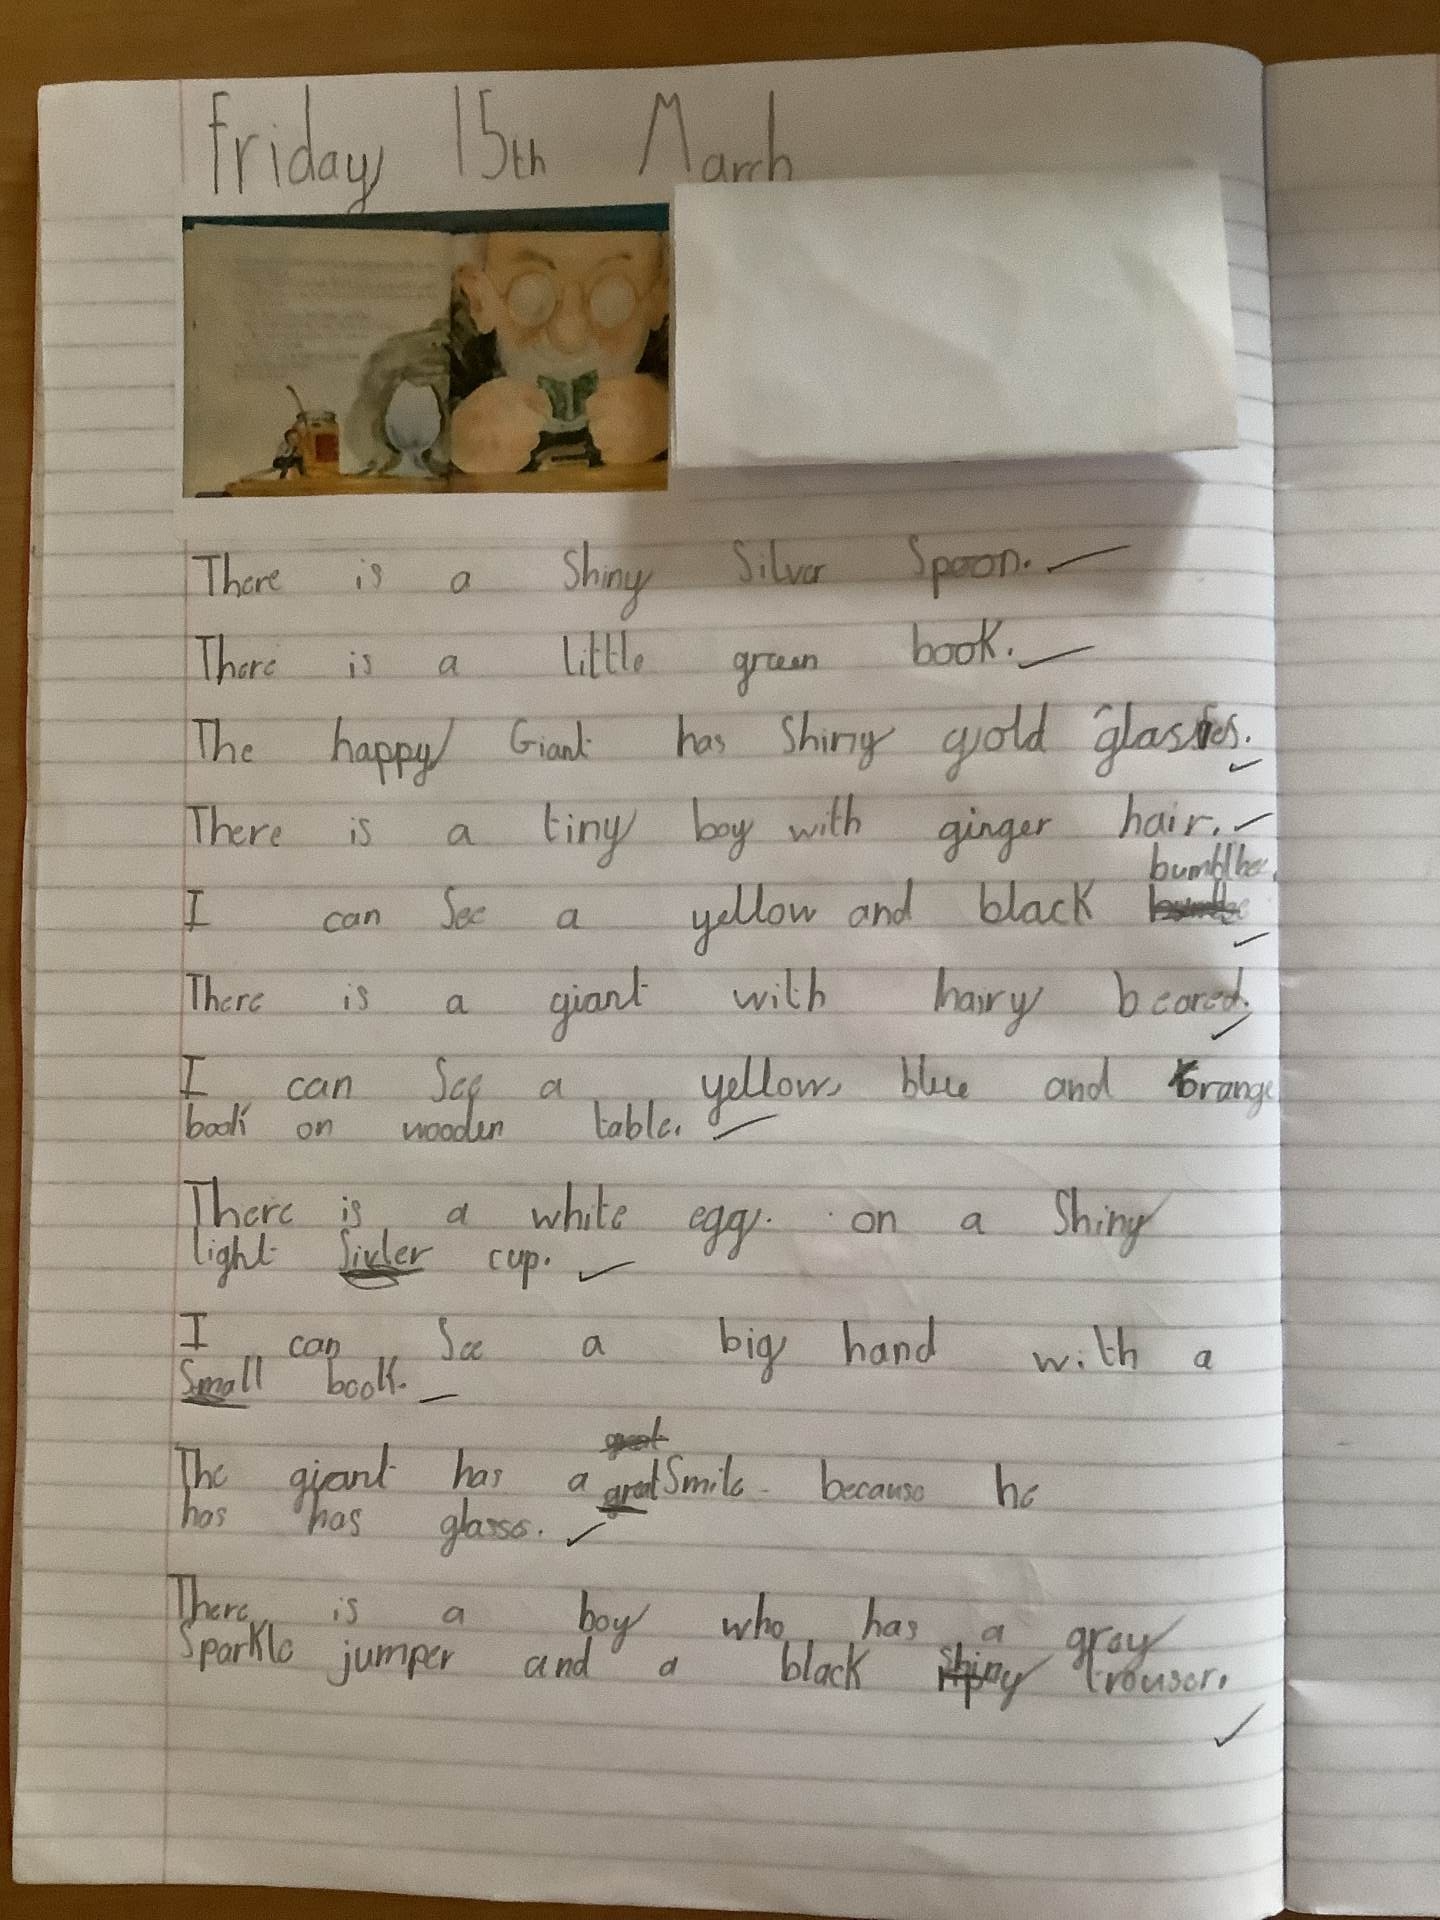 Friday 15th March
There is a Shiny Silver Spoon.
There is a little green book.
The happy Giant has Shiny gold glasses.
There is a tiny boy with ginger hair.
bumblbee.
I can See a yellow and black
There is a giant with hairy beared.
I can See a yellow, blue and orange
book on wooden table.
There is a white egg. on a Shiny
light Sivler cup.
I can See a big hand with a
Small book.
great
The giant has a great Smile. because he
has has glasses.
There is a boy who has a gray
Sparkle jumper and a black shiny trouser.